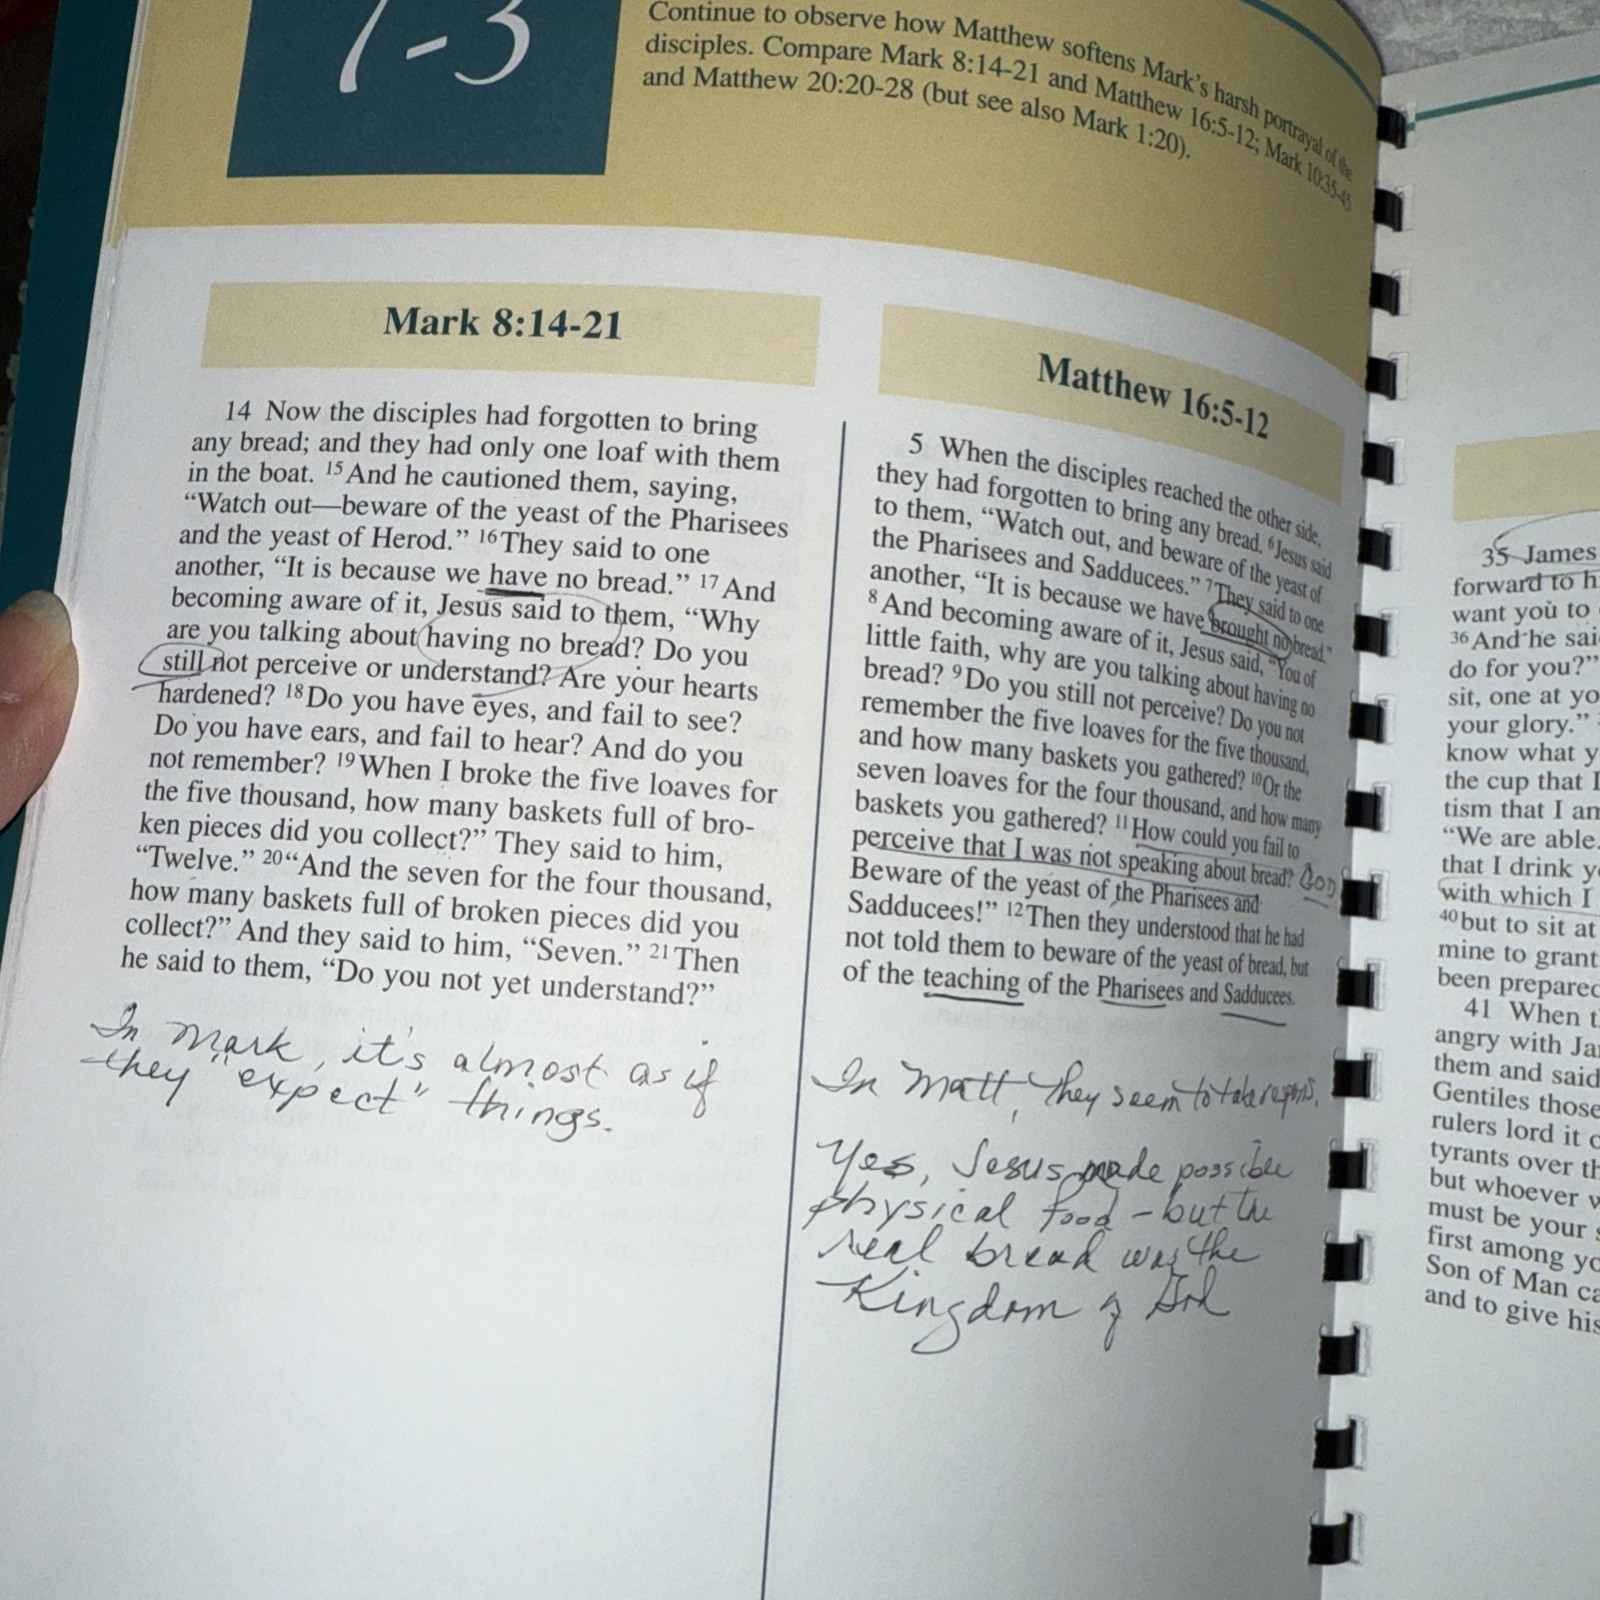 1-3
Continue to observe how Matthew softens Mark's harsh portrayal of the
disciples. Compare Mark 8:14-21 and Matthew 16:5-12; Mark 10:35-45
and Matthew 20:20-28 (but see also Mark 1:20).
Mark 8:14-21
14 Now the disciples had forgotten to bring
any bread; and they had only one loaf with them
in the boat. 15 And he cautioned them, saying,
“Watch out—beware of the yeast of the Pharisees
and the yeast of Herod.” 16 They said to one
another, “It is because we have no bread.” 17 And
becoming aware of it, Jesus said to them, “Why
are you talking about having no bread? Do you
still not perceive or understand? Are your hearts
hardened? 18 Do you have eyes, and fail to see?
Do you have ears, and fail to hear? And do you
not remember? 19 When I broke the five loaves for
the five thousand, how many baskets full of bro-
ken pieces did you collect?” They said to him,
“Twelve.” 20 “And the seven for the four thousand,
how many baskets full of broken pieces did you
collect?” And they said to him, “Seven.” 21 Then
he said to them, “Do you not yet understand?”
In Mark, it's almost as if
they "expect" things.
Matthew 16:5-12
5 When the disciples reached the other side,
they had forgotten to bring any bread. 6 Jesus said
to them, “Watch out, and beware of the yeast of
the Pharisees and Sadducees.” 7 They said to one
another, “It is because we have brought no bread.”
8 And becoming aware of it, Jesus said, “You of
little faith, why are you talking about having no
bread? 9 Do you still not perceive? Do you not
remember the five loaves for the five thousand,
and how many baskets you gathered? 10 Or the
seven loaves for the four thousand, and how many
baskets you gathered? 11 How could you fail to
perceive that I was not speaking about bread? GOD
Beware of the yeast of the Pharisees and
Sadducees!” 12 Then they understood that he had
not told them to beware of the yeast of bread, but
of the teaching of the Pharisees and Sadducees.
In Matt, they seem to take
Yes, Jesus made possible
physical food - but the
real bread was the
Kingdom of God
35 James
forward to h
want you to
36 And he sai
do for you?”
sit, one at yo
your glory.”
know what y
the cup that I
tism that I am
“We are able.
that I drink y
with which I
40 but to sit at
mine to grant
been prepared
41 When t
angry with Ja
them and said
Gentiles those
rulers lord it o
tyrants over th
but whoever w
must be your s
first among yo
Son of Man ca
and to give his